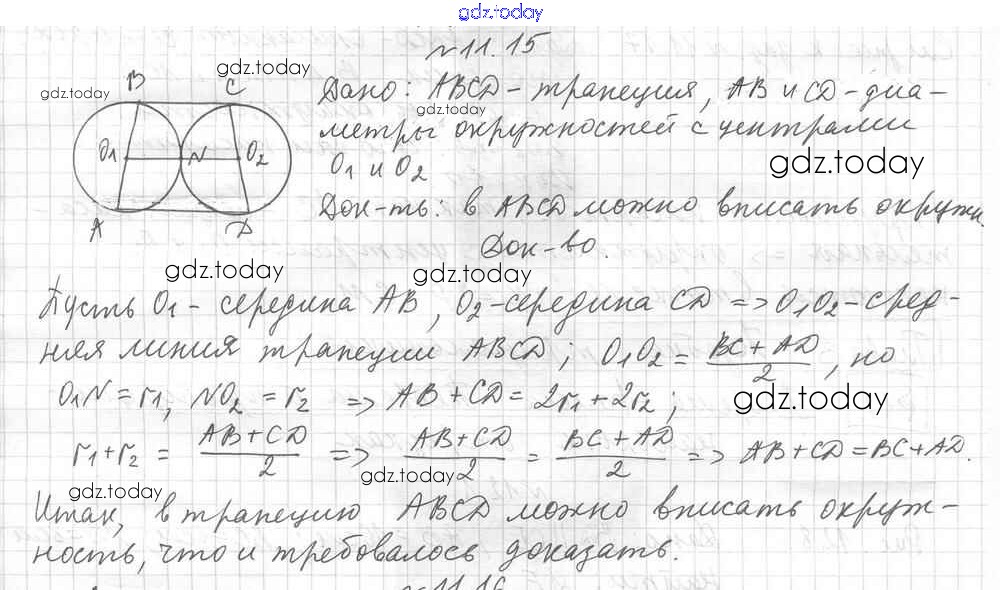 gdz.today
№11.15
gdz.today
gdz.today
B C
O1 N O2
A D
Дано: ABCD - трапеция, AB и CD - диа-
gdz.today
метры окружностей с центрами
O1 и O2
gdz.today
Док-ть: в ABCD можно вписать окружн.
Док-во.
gdz.today gdz.today
Пусть O1 - середина AB, O2 - середина CD => O1O2 - сред-
няя линия трапеции ABCD; O1O2 = (BC + AD)/2, но
O1N = r1, NO2 = r2 => AB + CD = 2r1 + 2r2;
gdz.today
r1 + r2 = (AB + CD)/2 => (AB + CD)/2 = (BC + AD)/2 => AB + CD = BC + AD.
gdz.today
gdz.today
Итак, в трапецию ABCD можно вписать окруж-
ность, что и требовалось доказать.
№11.16